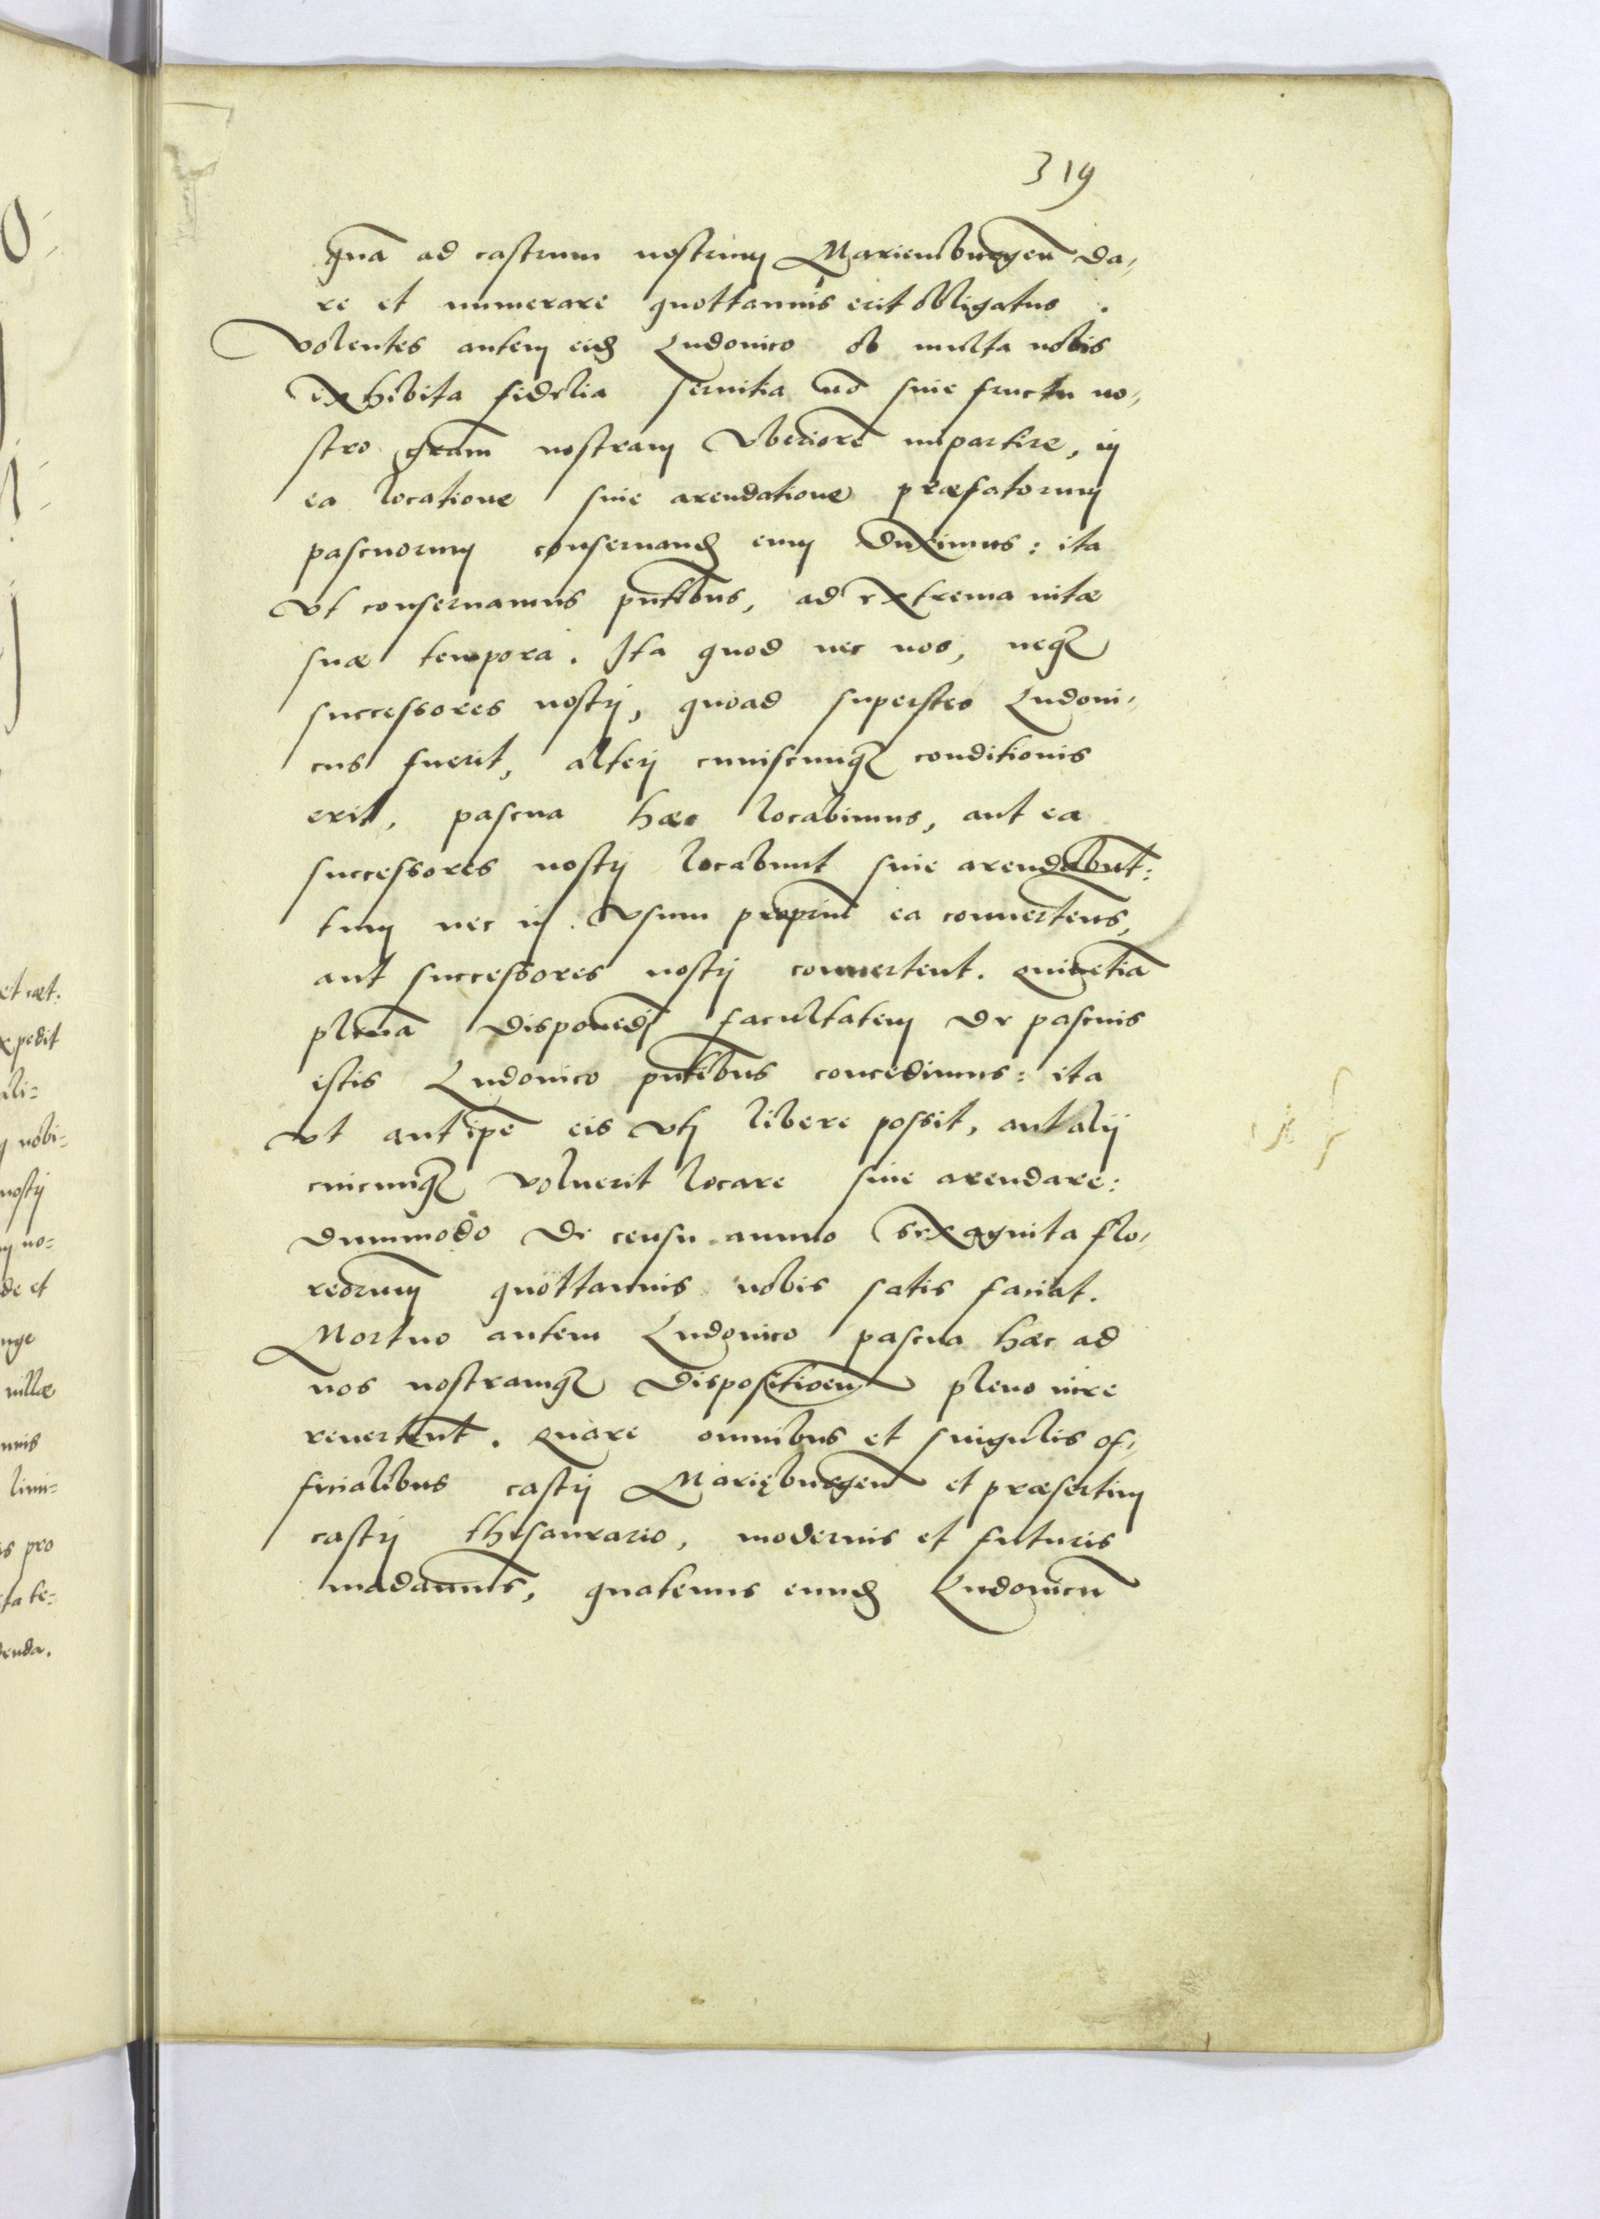 319
qua͞ ad castrum nostrum Marienburgen͞ da,
re et numerare quottannis erit obligatus.
Volentes autem eid. Ludouico ob multa nobis
exhibita fidelia seruitia no͞ sine fructu no,
stro gram͞ nostram vberiore͞ impartire, in
ea locatione siue arendatione præfatorum
pascuorum conseruand. eum duximus: ita
vt conseruamus pntibus͞, ad extrema uitæ
suæ tempora. Ita quod nec nos, neq3
successores nostrj, quoad superstes Ludoui,
cus fuerit, alterj cuiuscunq3 conditionis
erit, pascua hæc locabimus, aut ea
successores nostrj locabunt siue arendabut͞:
tum nec in vsum propriu͞ ea conuertens,
aut successores nostrj conuertent. Quinetia͞
plena͞ disponedj͞ facultatem de pascuis
istis Ludouico pntibus͞ concedimus: ita
vt aut ipe͞ eis vtj libere possit, aut alij
cuicunq3 voluerit locare siue arendare:
dummodo de censu annuo sexaginta flo,
renorum quottannis nobis satis faciat.
Mortuo autem Ludouico pascua hæc ad
nos nostramq3 dispositioem͞ pleno iure
reuertent͞. Quare omnibus et singulis of,
ficialibus castrj Marięburgen͞ et præsertim
castrj thesaurario, modernis et futuris
madamus͞, quatenus eund. Ludouicu͞
et cæt.
xpedit
ali=
nobi=
nostrj
no=
de et
unge
uillæ
limi=
pro
ta te=
denda.